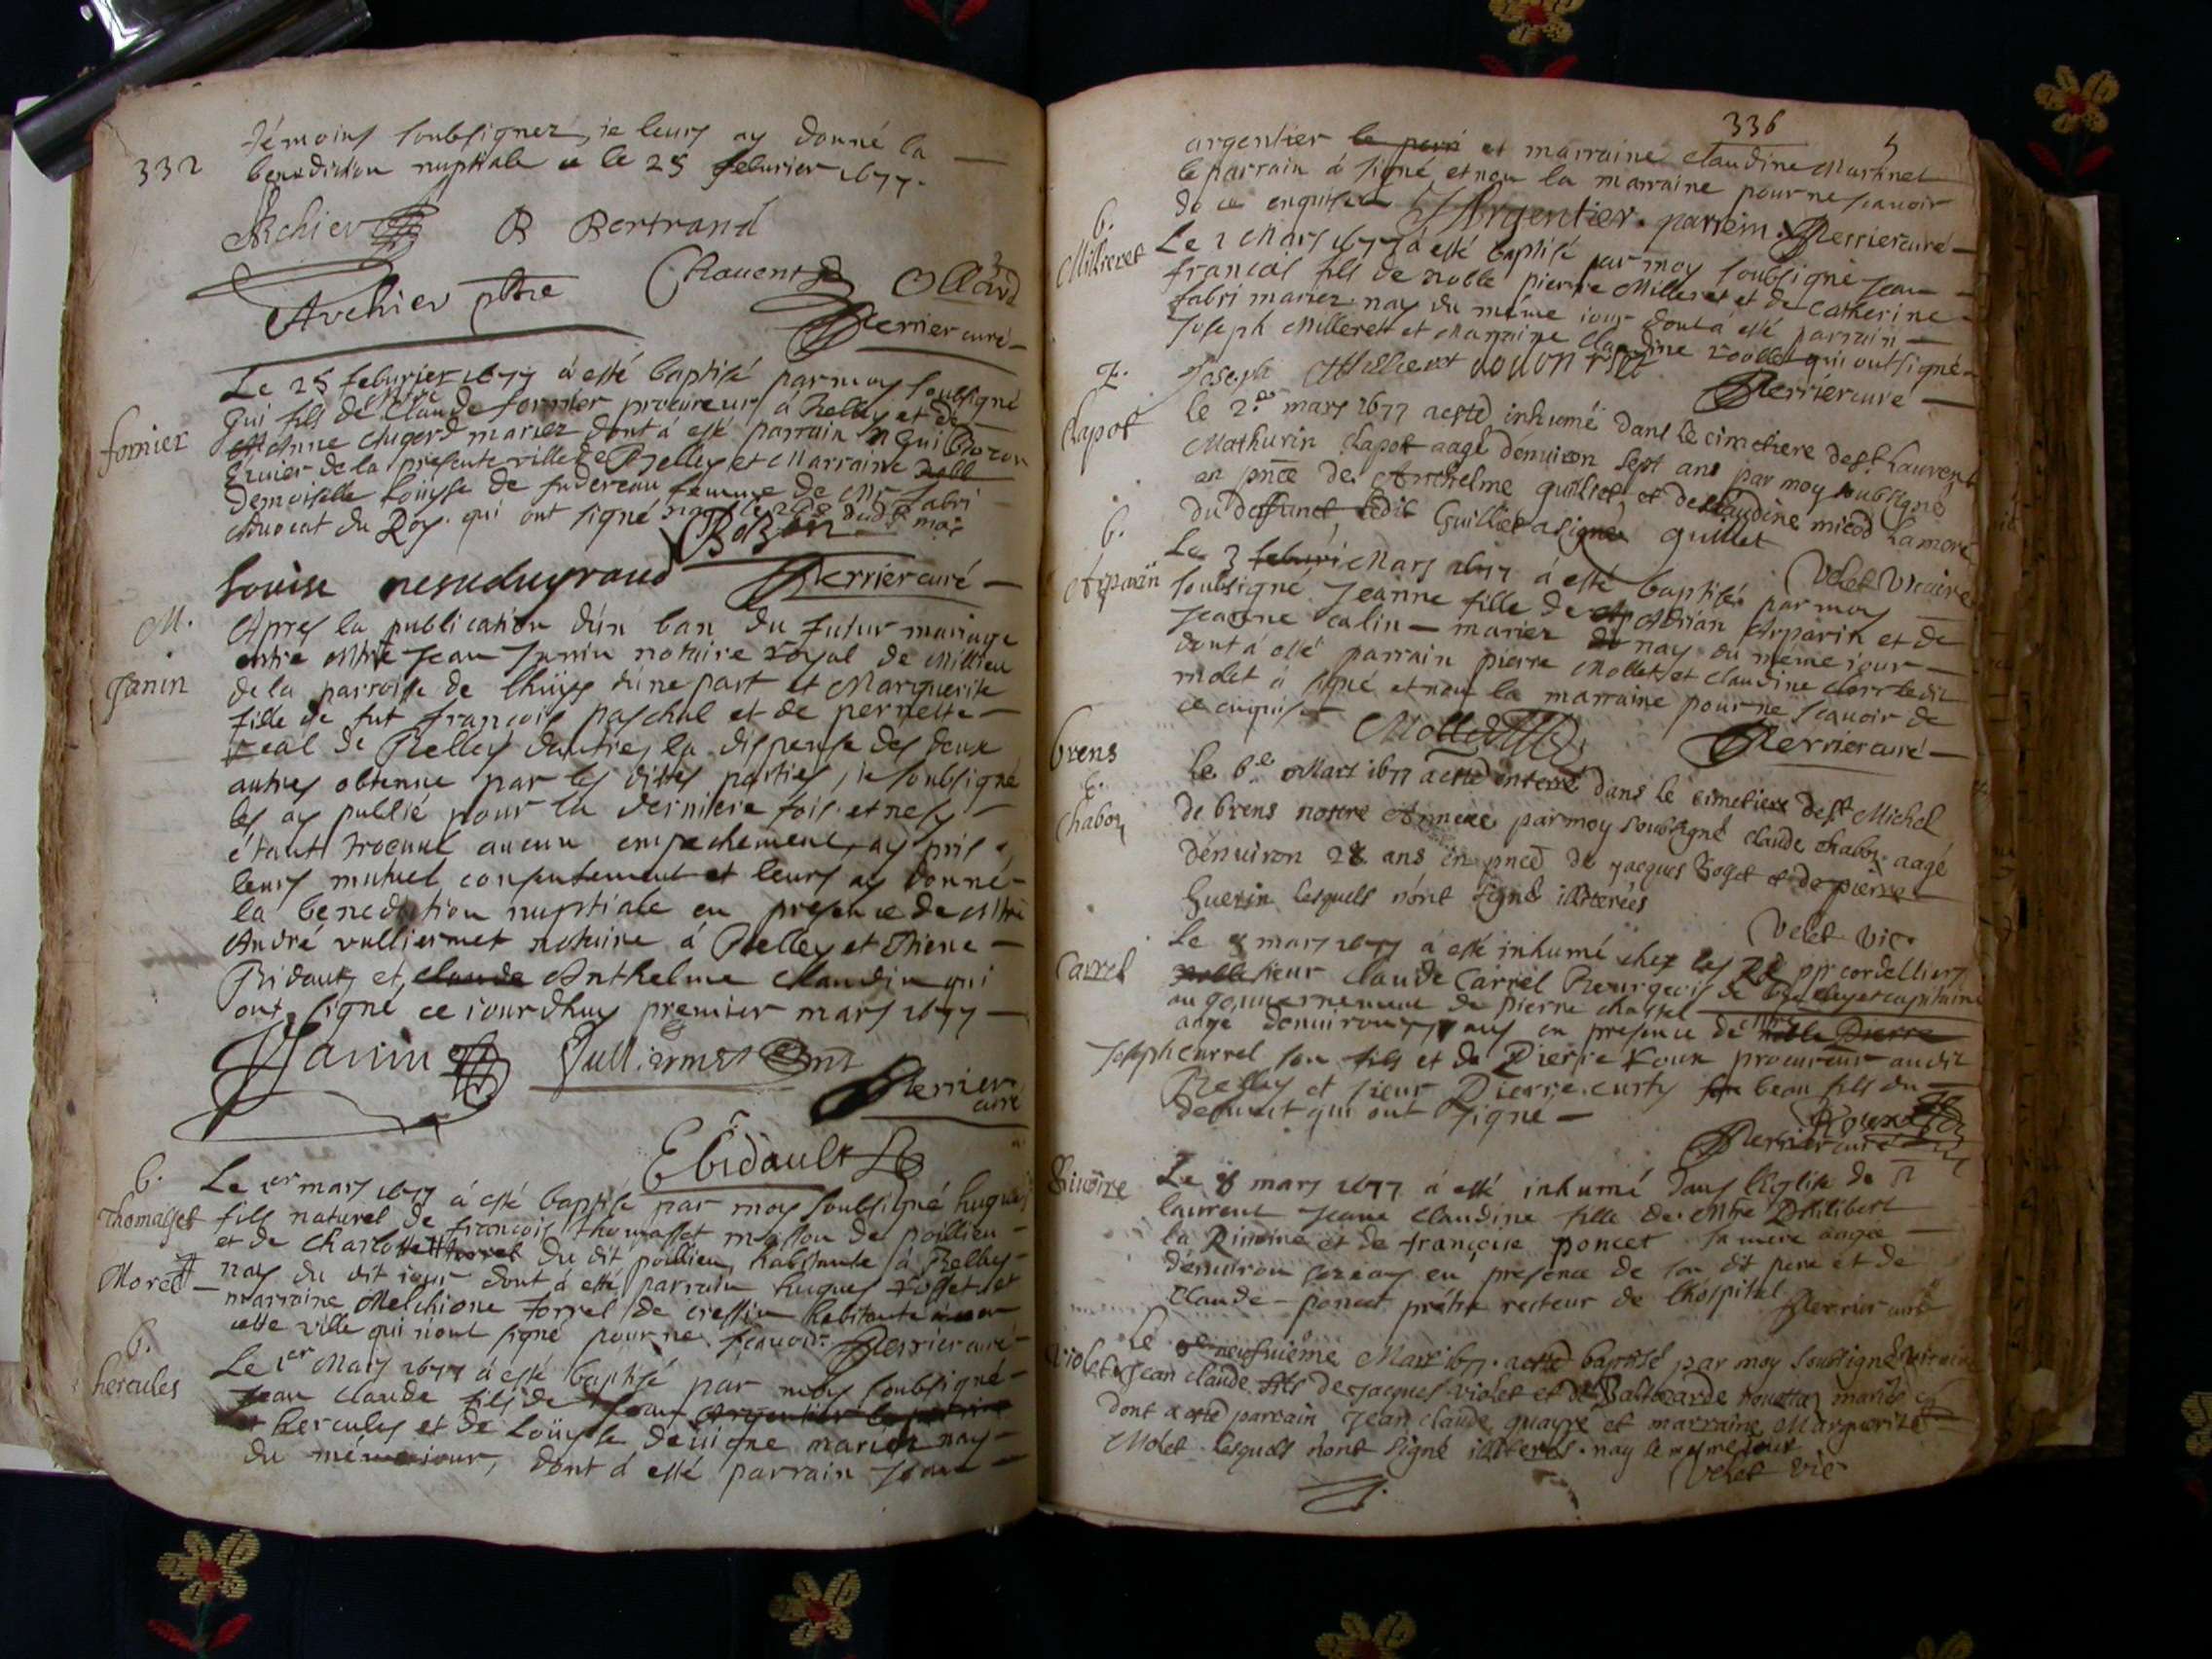 332
témoins soubsignez, ie leurs ay donné la
benediction nuptiale le 25 feburier 1677.
Archier B Bertrand
Archier ptre Chavent
Perrier curé
Le 25 feburier 1677 à esté baptisé par moy soubsigné
fornier
Gui fils de Claude fornier procureur à Belley et de
Anne Augerd mariez dont à esté parrain Gui Bozon
de la presente ville de Belley et Marraine
Demoiselle Loüyse de femme de Mr fabri
Advocat du Roy. qui ont signé
Bozon
Louise Perrier curé
M.
Janin
Apres la publication d'un ban du futur mariage
entre Mtre Jean Janin notaire royal de Millieu
de la parroisse de lhuys d'une part et Marguerite
fille de fut françois paschal et de pernette
real de Belley d'autre, la dispense des deux
autres obtenue par les dittes parties, ie soubsigné
les ay publié pour la derniere fois et nesy
étant trouvé aucun empechement, ay pris
leurs mutuel consentement et leurs ay donné
la benediction nuptiale en presence de Mtre
André vulliermet notaire à Belley et
Bidault, et claude Anthelme Claudin qui
ont signé ce iourdhuy premier mars 1677
Janin Vulliermet
Perrier curé
EBidault
b.
Thomasset
Le 1er mars 1677 à esté baptisé par moy soubsigné hugues
fils naturel de françois thomasset masson de poillieu
et de Charlotte du dit poillieu habitante à Belley
Morel
nay du dit iour dont à esté parrain hugues rosset et
marraine Melchione torrel de cressin habitante
cette ville qui n'ont signé pour ne sçavoir. Perrier curé
b.
hercules
Le 1er Mars 1677 à esté baptisé par moy soubsigné
Jean Claude fils de Jean
hercules et de Loüyse mariez nay
du méme iour, dont à esté parrain Jean
336
5
argentier le parri et marraine Claudine Martinet
le parrain à signé, et non la marraine pour ne scavoir
de ce enquise Argentier. parrein. Perrier curé
b.
Milleret
Le 2 Mars 1677 à esté baptisé par moy soubsigné Jean
francois fils de noble pierre Milleret et de Catherine
fabri mariez. nay du méme iour dont à esté parrain
Joseph Milleret et Marraine Claudine qui ont signé
Joseph Milleret
Perrier curé
Clapot
le 2e. mars 1677 a esté inhumé dans le cimetiere de st. Laurent
Mathurin Clapot aagé d'enuiron sept ans par moy soubsigné
en pnce de Anthelme guilliet et de claudine micod la mere
du deffunct, ledit Guilliet a signé guilliet
Velet Vicaire
b.
Arparin
Le 3 feburi Mars 1677 à esté baptisée par moy
soubsigné Jeanne fille de Adrian Arparin et de
Jeanne calin mariez nay du méme iour
dont à esté parrain pierre Mollet et claudine ledit
molet à signé et non la marraine pour ne scavoir de
ce enquise
Mollet Perrier curé
brens
Chabon
Le 6e Mars 1677 a esté enterré dans le cimetiere de st Michel
de brens nostre Annexe par moy soubsigné claude chabon aagé
d'enuiron 28 ans en pnce de Jacques Boget et de pierre
Guerin lesquels n'ont signé illiterés
Velet vic.
Carrel
Le 8 mars 1677 à esté inhumé chez les RR pp cordelliers
noble sieur Claude Carrel Bourgeois de Belley et capitaine
au gouvernement de Pierre chastel
aagé d'enuiron ans en presence de noble Pierre
Joseph Carrel son fils et de Pierre roux procureur audit
Belley et sieur Pierre curty beau fils du
defunct qui ont signé
Roux
Perrier curé
Riuoire
Le 8 mars 1677 à esté inhumé dans l'église de st
laurent Jeane Claudine fille de Mtre Philibert
la Riuoire et de françoise poncet sa mere aagée
d'enuiron en presence de son dit pere et de
Claude poncet prétre recteur de lhospital
Perrier curé
Violet
Le neufuiéme Mars 1677. a esté baptisé par moy soubsigné vicaire
Jean claude fils de Jacques violet et de mariés
dont a esté parrain Jean claude quayre et marraine Marguerite
Molet lesquels n'ont signé illiterés. nay le mesme jour
Velet vic